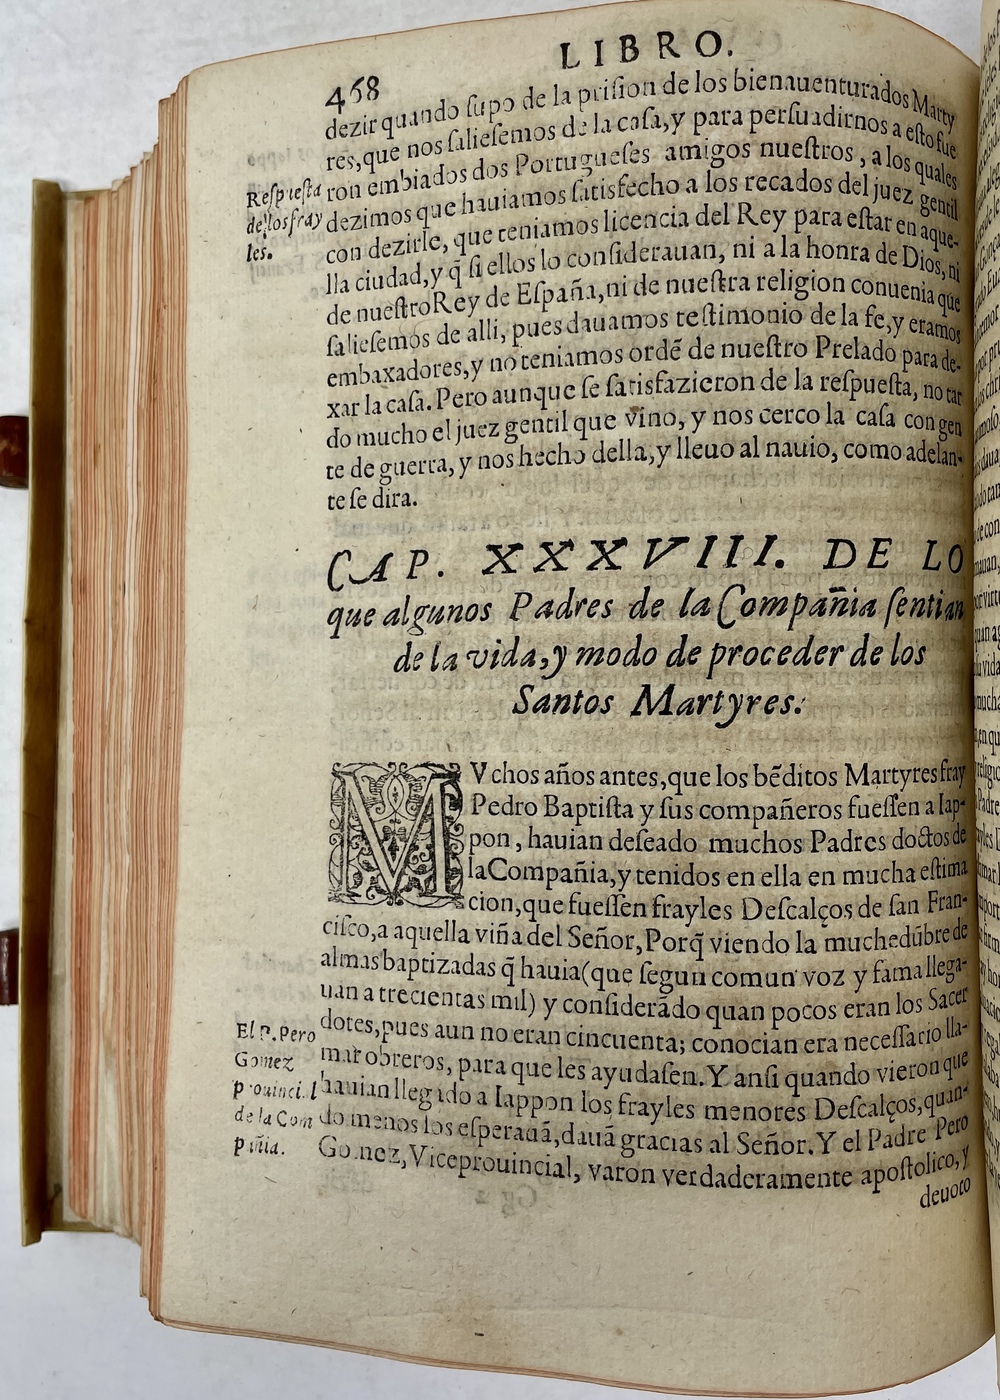 LIBRO.
468
dezir quando ſupo de la priſion de los bienauenturados Marty
res, que nos ſalieſemos de la caſa, y para perſuadirnos a eſto fue
ron embiados dos Portugueſes amigos nueſtros, a los quales
dezimos que hauiamos ſatisfecho a los recados del juez gentil
con dezirle, que teniamos licencia del Rey para eſtar en aque-
lla ciudad, y q̃ ſi ellos lo conſiderauan, ni a la honra de Dios, ni
de nueſtro Rey de Eſpaña, ni de nueſtra religion conuenia que
ſalieſemos de alli, pues dauamos teſtimonio de la fe, y eramos
embaxadores, y no teniamos ordẽ de nueſtro Prelado para de-
xar la caſa. Pero aunque ſe ſatisfazieron de la reſpueſta, no tar
do mucho el juez gentil que vino, y nos cerco la caſa con gen
te de guerra, y nos hecho della, y lleuo al nauio, como adelan-
te ſe dira.
Reſpueſta
de los fray
les.
CAP. XXXVIII. DE LO
que algunos Padres de la Compañia ſentian
de la vida, y modo de proceder de los
Santos Martyres.
MVchos años antes, que los bẽditos Martyres fray
Pedro Baptiſta y ſus compañeros fueſſen a Iap-
pon, hauian deſeado muchos Padres doctos de
la Compañia, y tenidos en ella en mucha eſtima
cion, que fueſſen frayles Deſcalços de ſan Fran-
ciſco, a aquella viña del Señor, Porq̃ viendo la muchedũbre de
almas baptizadas q̃ hauia (que ſegun comun voz y fama llega-
uan a trecientas mil) y conſiderãdo quan pocos eran los Sacer
dotes, pues aun no eran cincuenta; conocian era neceſſario lla-
mar obreros, para que les ayudaſen. Y anſi quando vieron que
hauian llegado a Iappon los frayles menores Deſcalços, quan-
do menos los eſperauã, dauã gracias al Señor. Y el Padre Pero
Gomez, Viceprouincial, varon verdaderamente apoſtolico, y
El P. Pero
Gomez
prouincial
de la Com
pañia.
deuoto